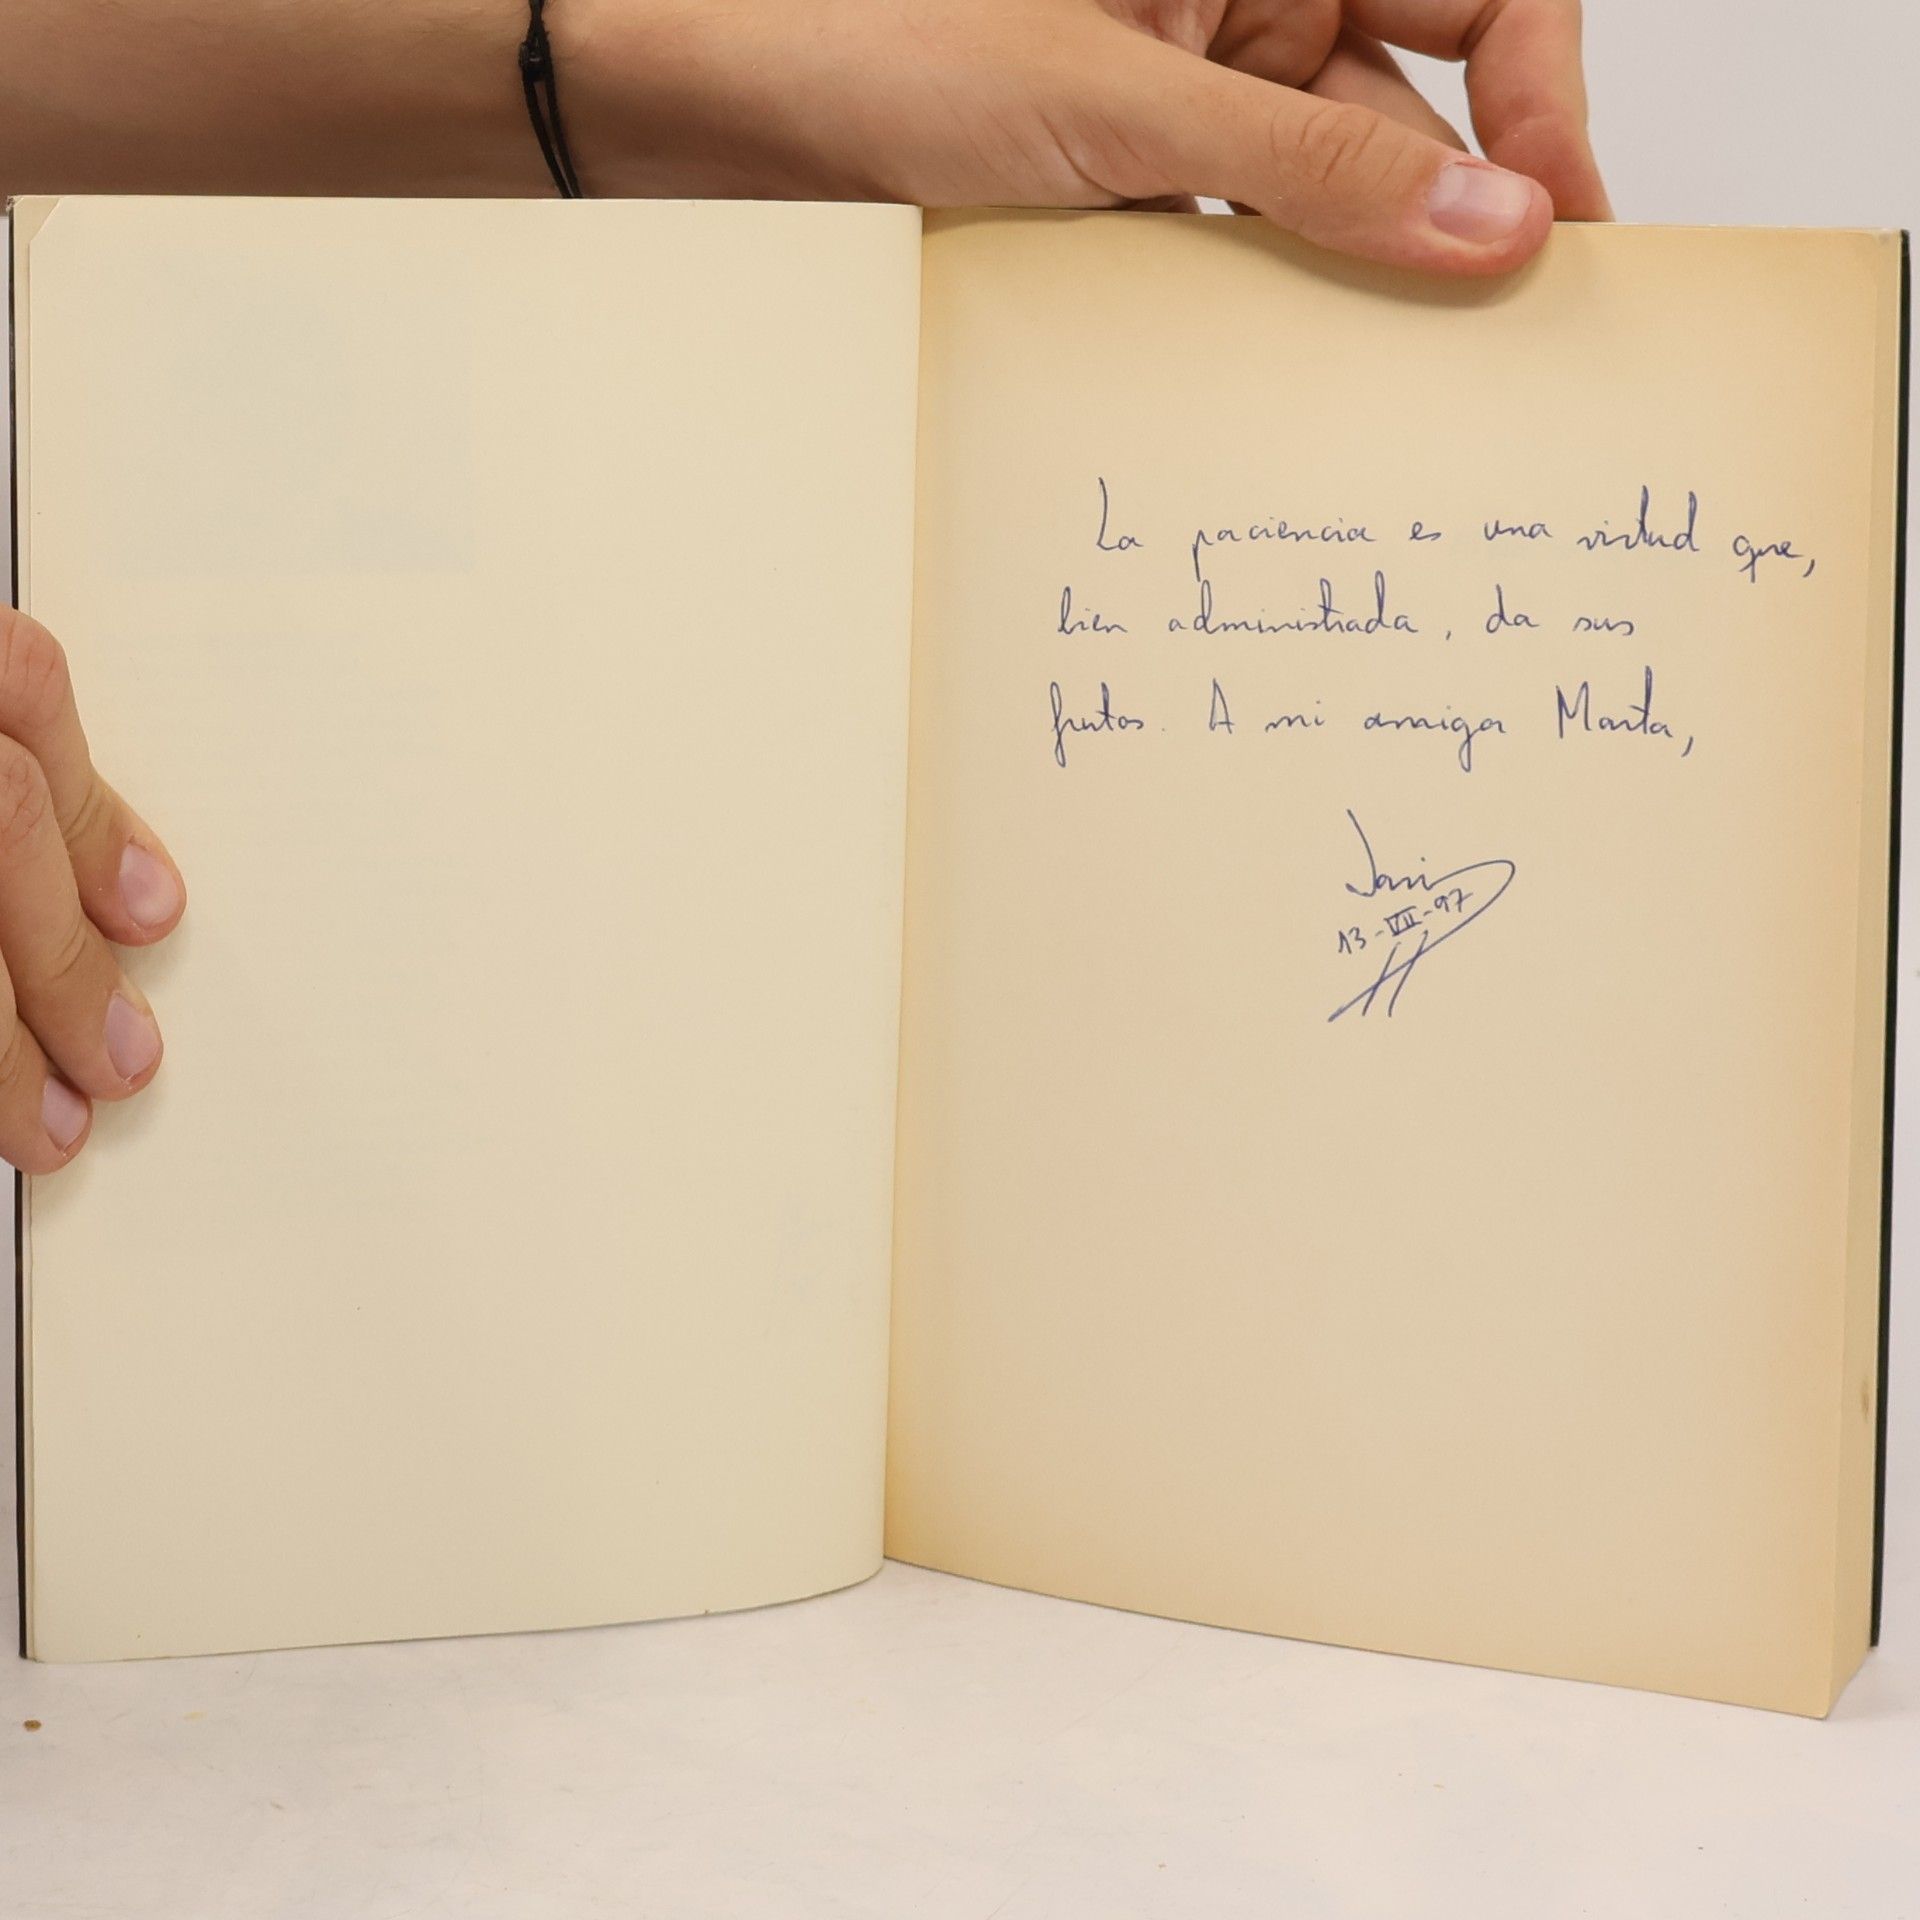 La paciencia es una virtud que,
bien administrada, da sus
frutos. A mi amiga Marta,
Javi
13-VII-97